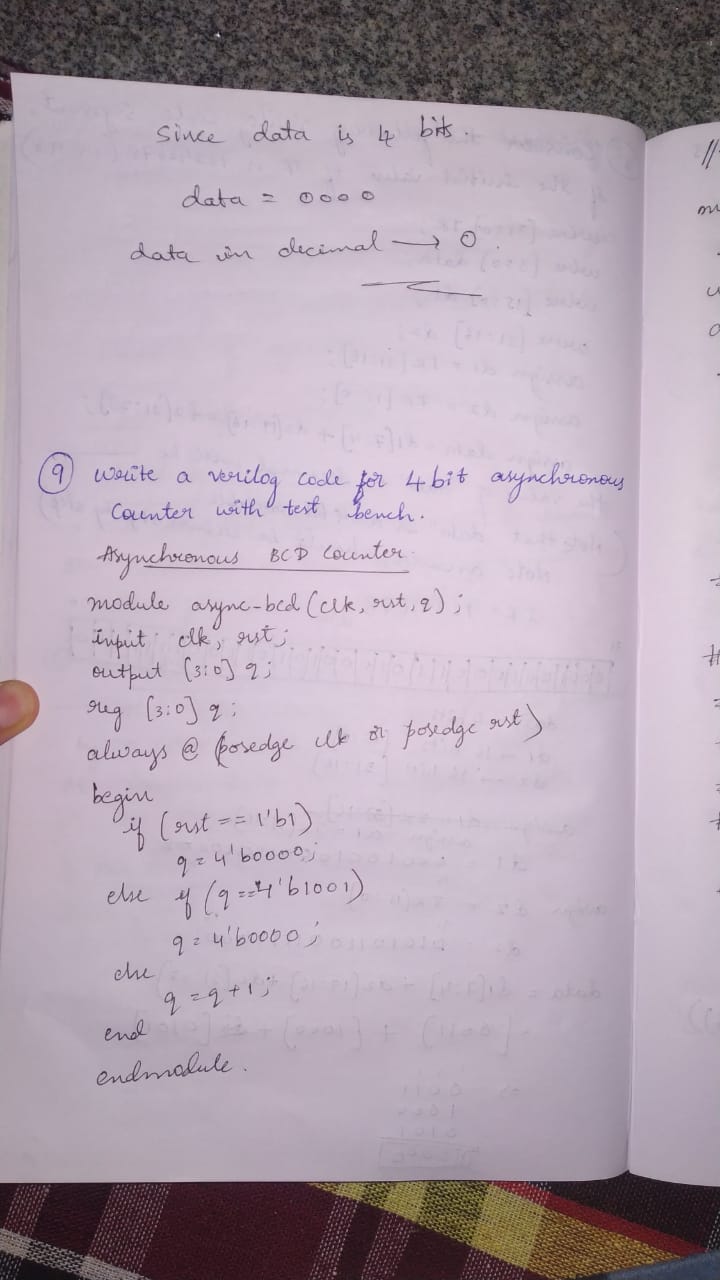 Since data is 4 bits.
data = 0000
data in decimal → 0.
9 Write a verilog code for 4 bit asynchronous
Counter with test bench.
Asynchronous BCD Counter.
module async-bcd (clk, rst, q);
input clk, rst;
output [3:0] q;
reg [3:0] q;
always @ (posedge clk or posedge rst)
begin
if (rst == 1'b1)
q = 4'b0000;
else if (q == 4'b1001)
q = 4'b0000;
else
q = q + 1;
end
endmodule.